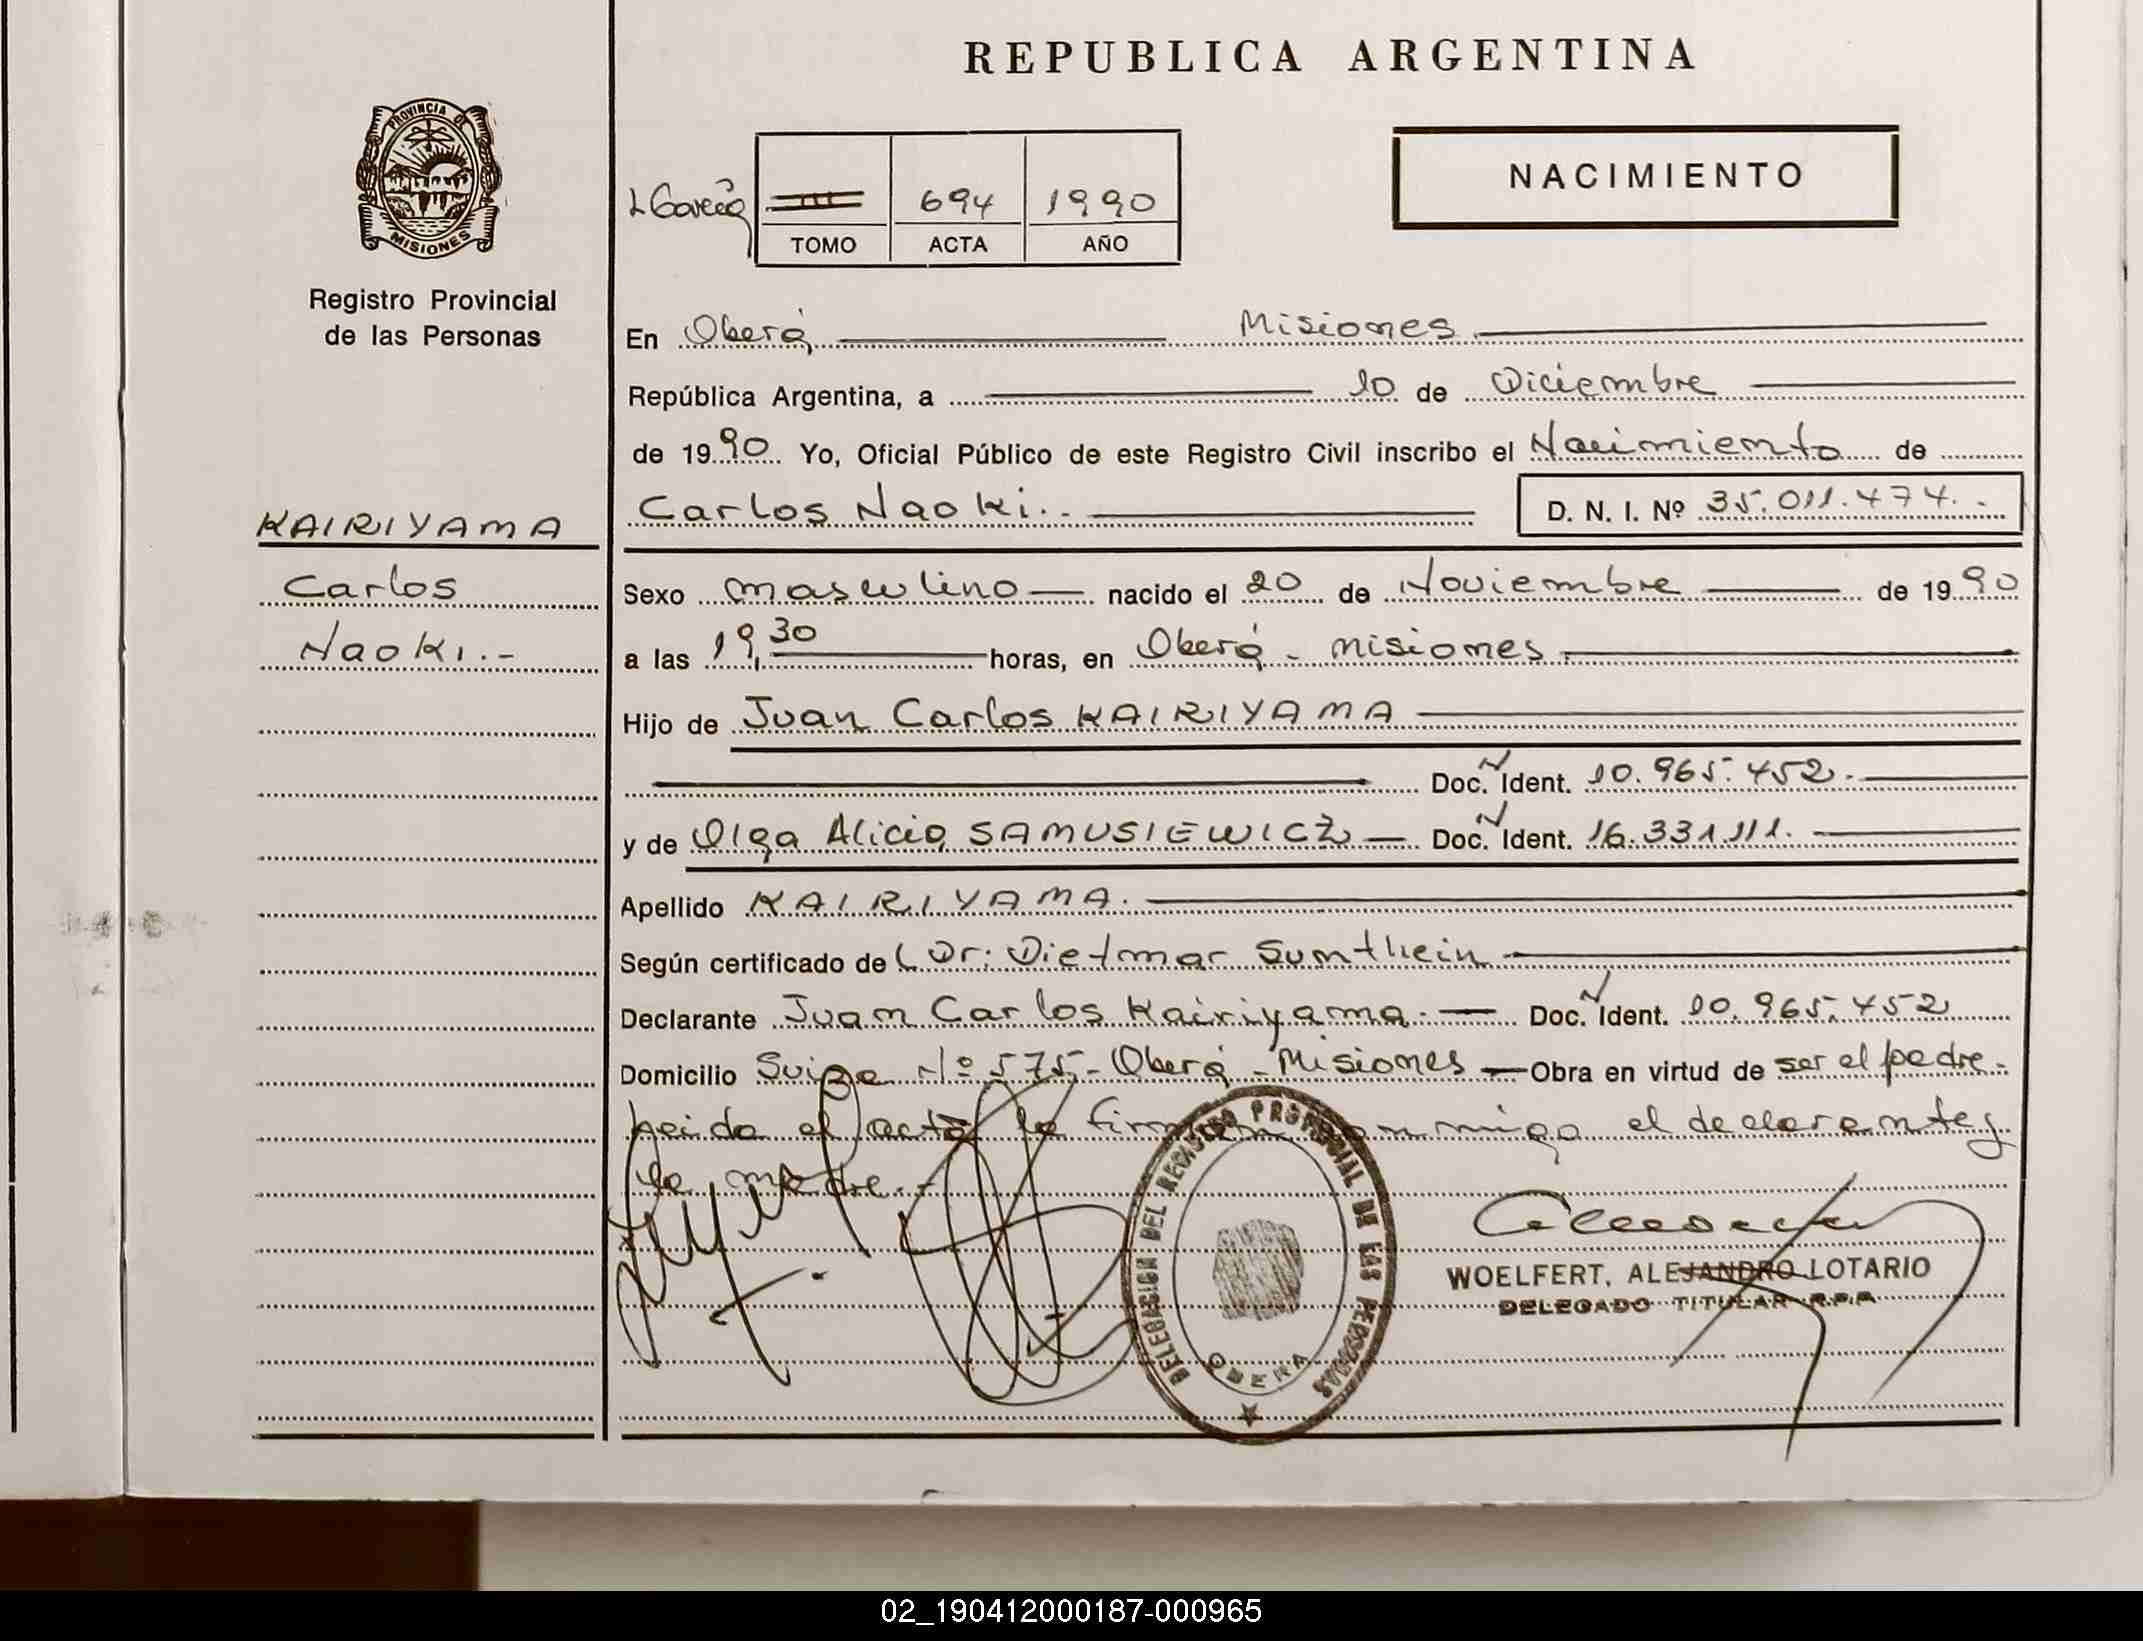 REPUBLICA ARGENTINA
PROVINCIA DE
MISIONES
Registro Provincial
de las Personas
NACIMIENTO
694 1990
TOMO ACTA AÑO
En Oberá Misiones
República Argentina, a 10 de Diciembre
de 1990 Yo, Oficial Público de este Registro Civil inscribo el Nacimiento de
Carlos Naoki.- D. N. I. Nº 35.011.474.-
KAIRIYAMA
Carlos
Naoki.-
Sexo masculino nacido el 20 de Noviembre de 1990
a las 19,30 horas, en Oberá - Misiones
Hijo de Juan Carlos KAIRIYAMA
Doc. N Ident. 10.965.452.
y de Olga Alicia SAMUSIEWICZ Doc. N Ident. 16.331.111.
Apellido KAIRIYAMA.
Según certificado de Dr. Dietmar Sumthein
Declarante Juan Carlos Kairiyama. Doc. N Ident. 10.965.452
Domicilio Suiza Nº 575 - Oberá - Misiones Obra en virtud de ser el padre.
Leida el acta la firman conmigo el declarante y
la madre.-
DELEGACION DEL REGISTRO PROVINCIAL DE LAS PERSONAS
OBERA
WOELFERT, ALEJANDRO LOTARIO
DELEGADO TITULAR R.P.P.
02_190412000187-000965